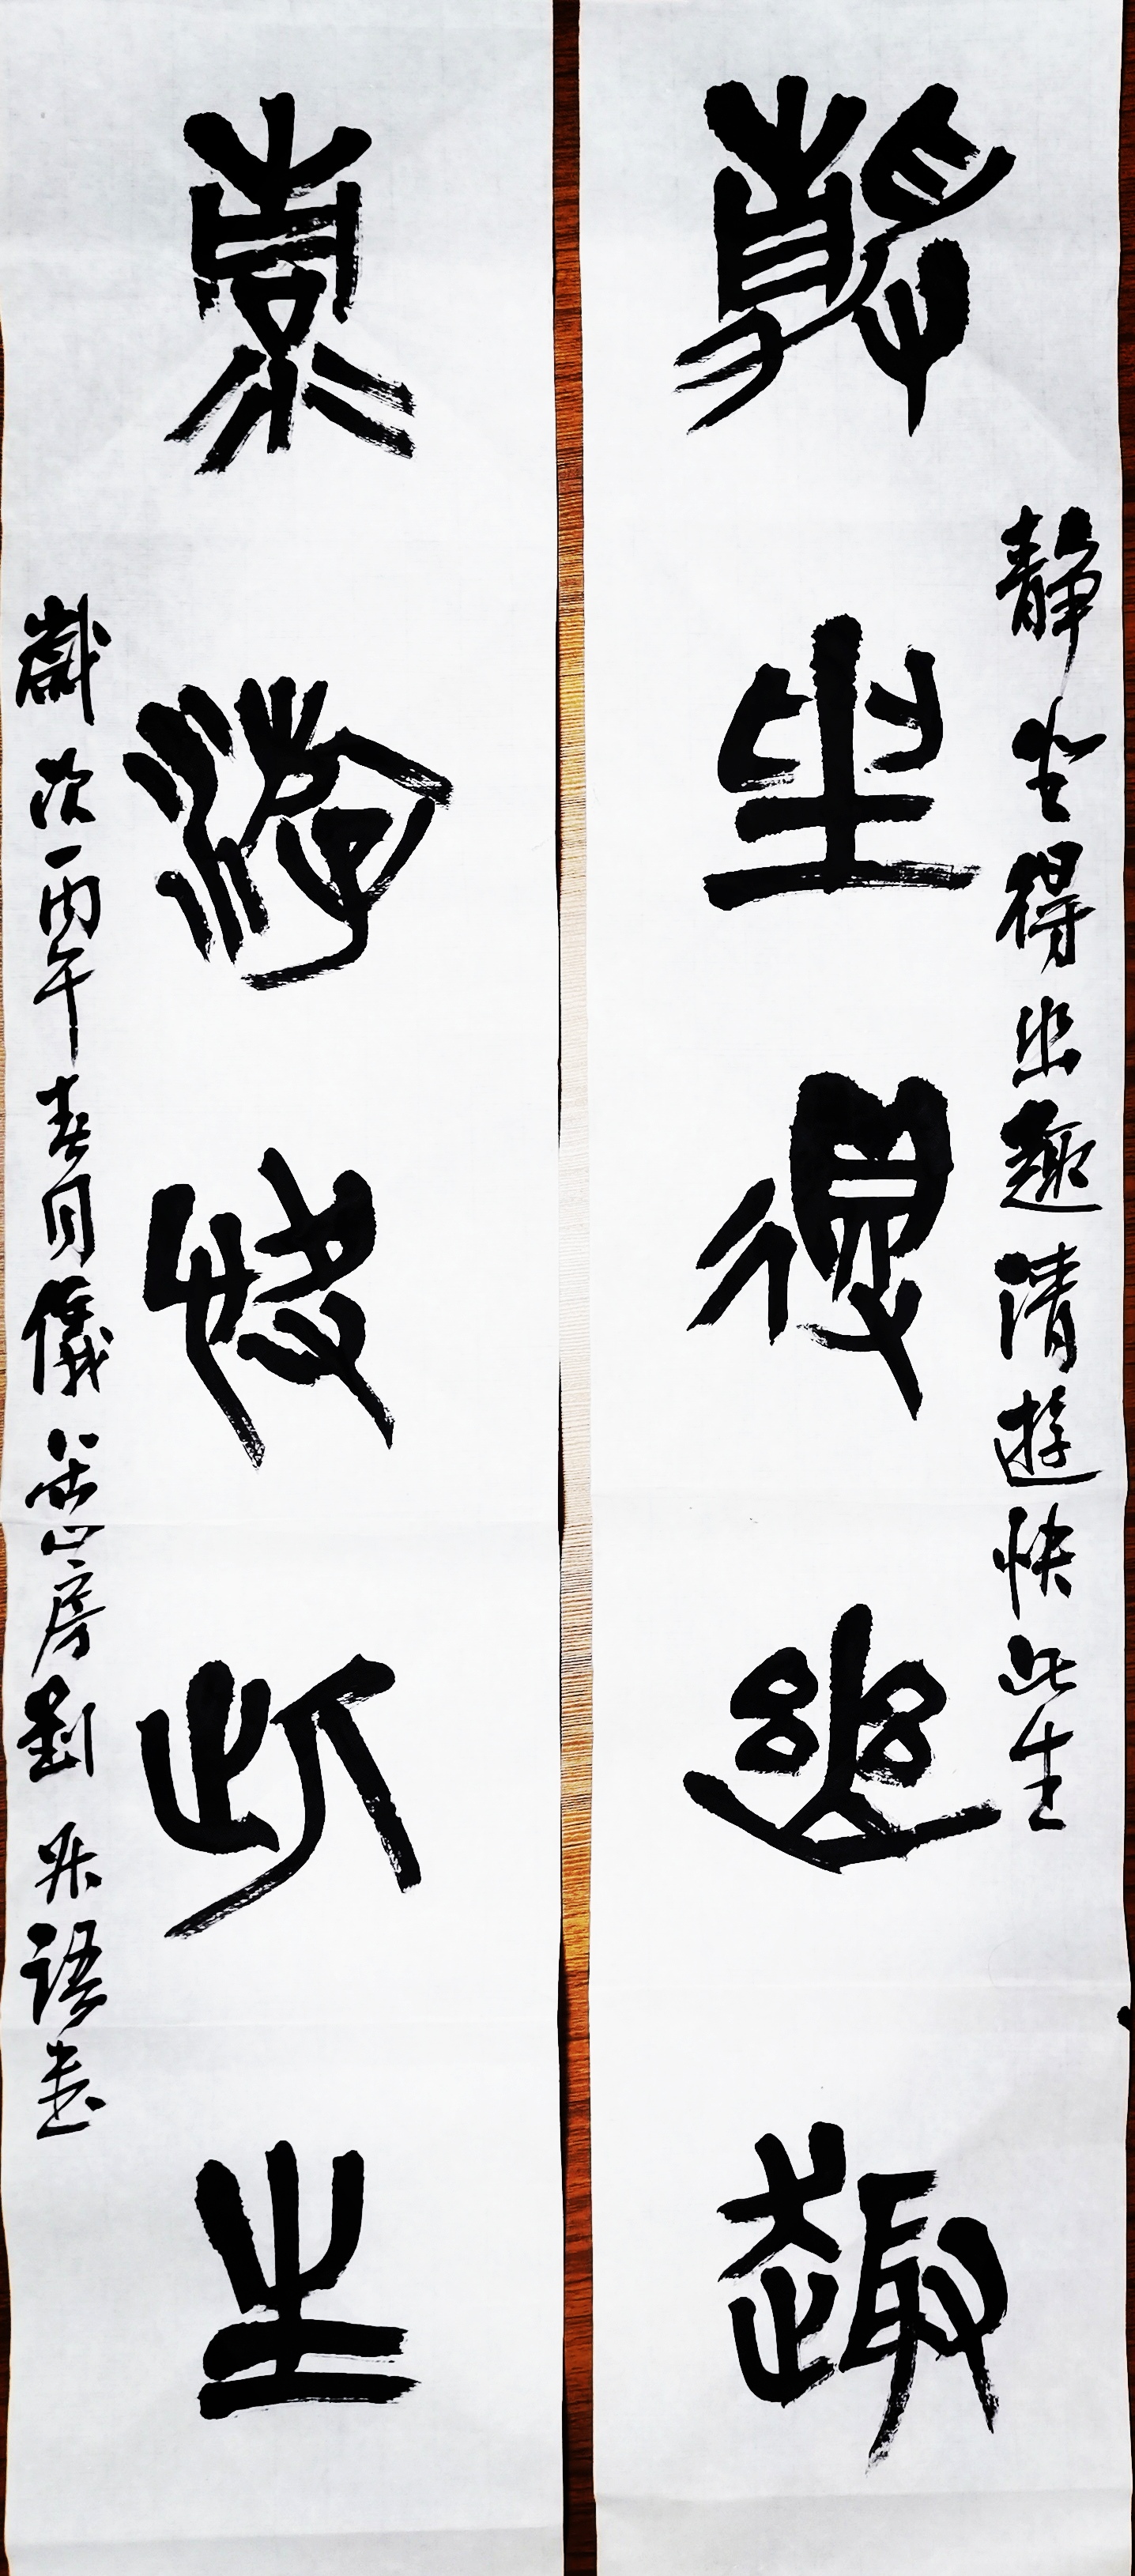 靜坐得幽趣清遊快此生
靜坐得幽趣
清游快此生
歲次丙午春月儀山房劉語書